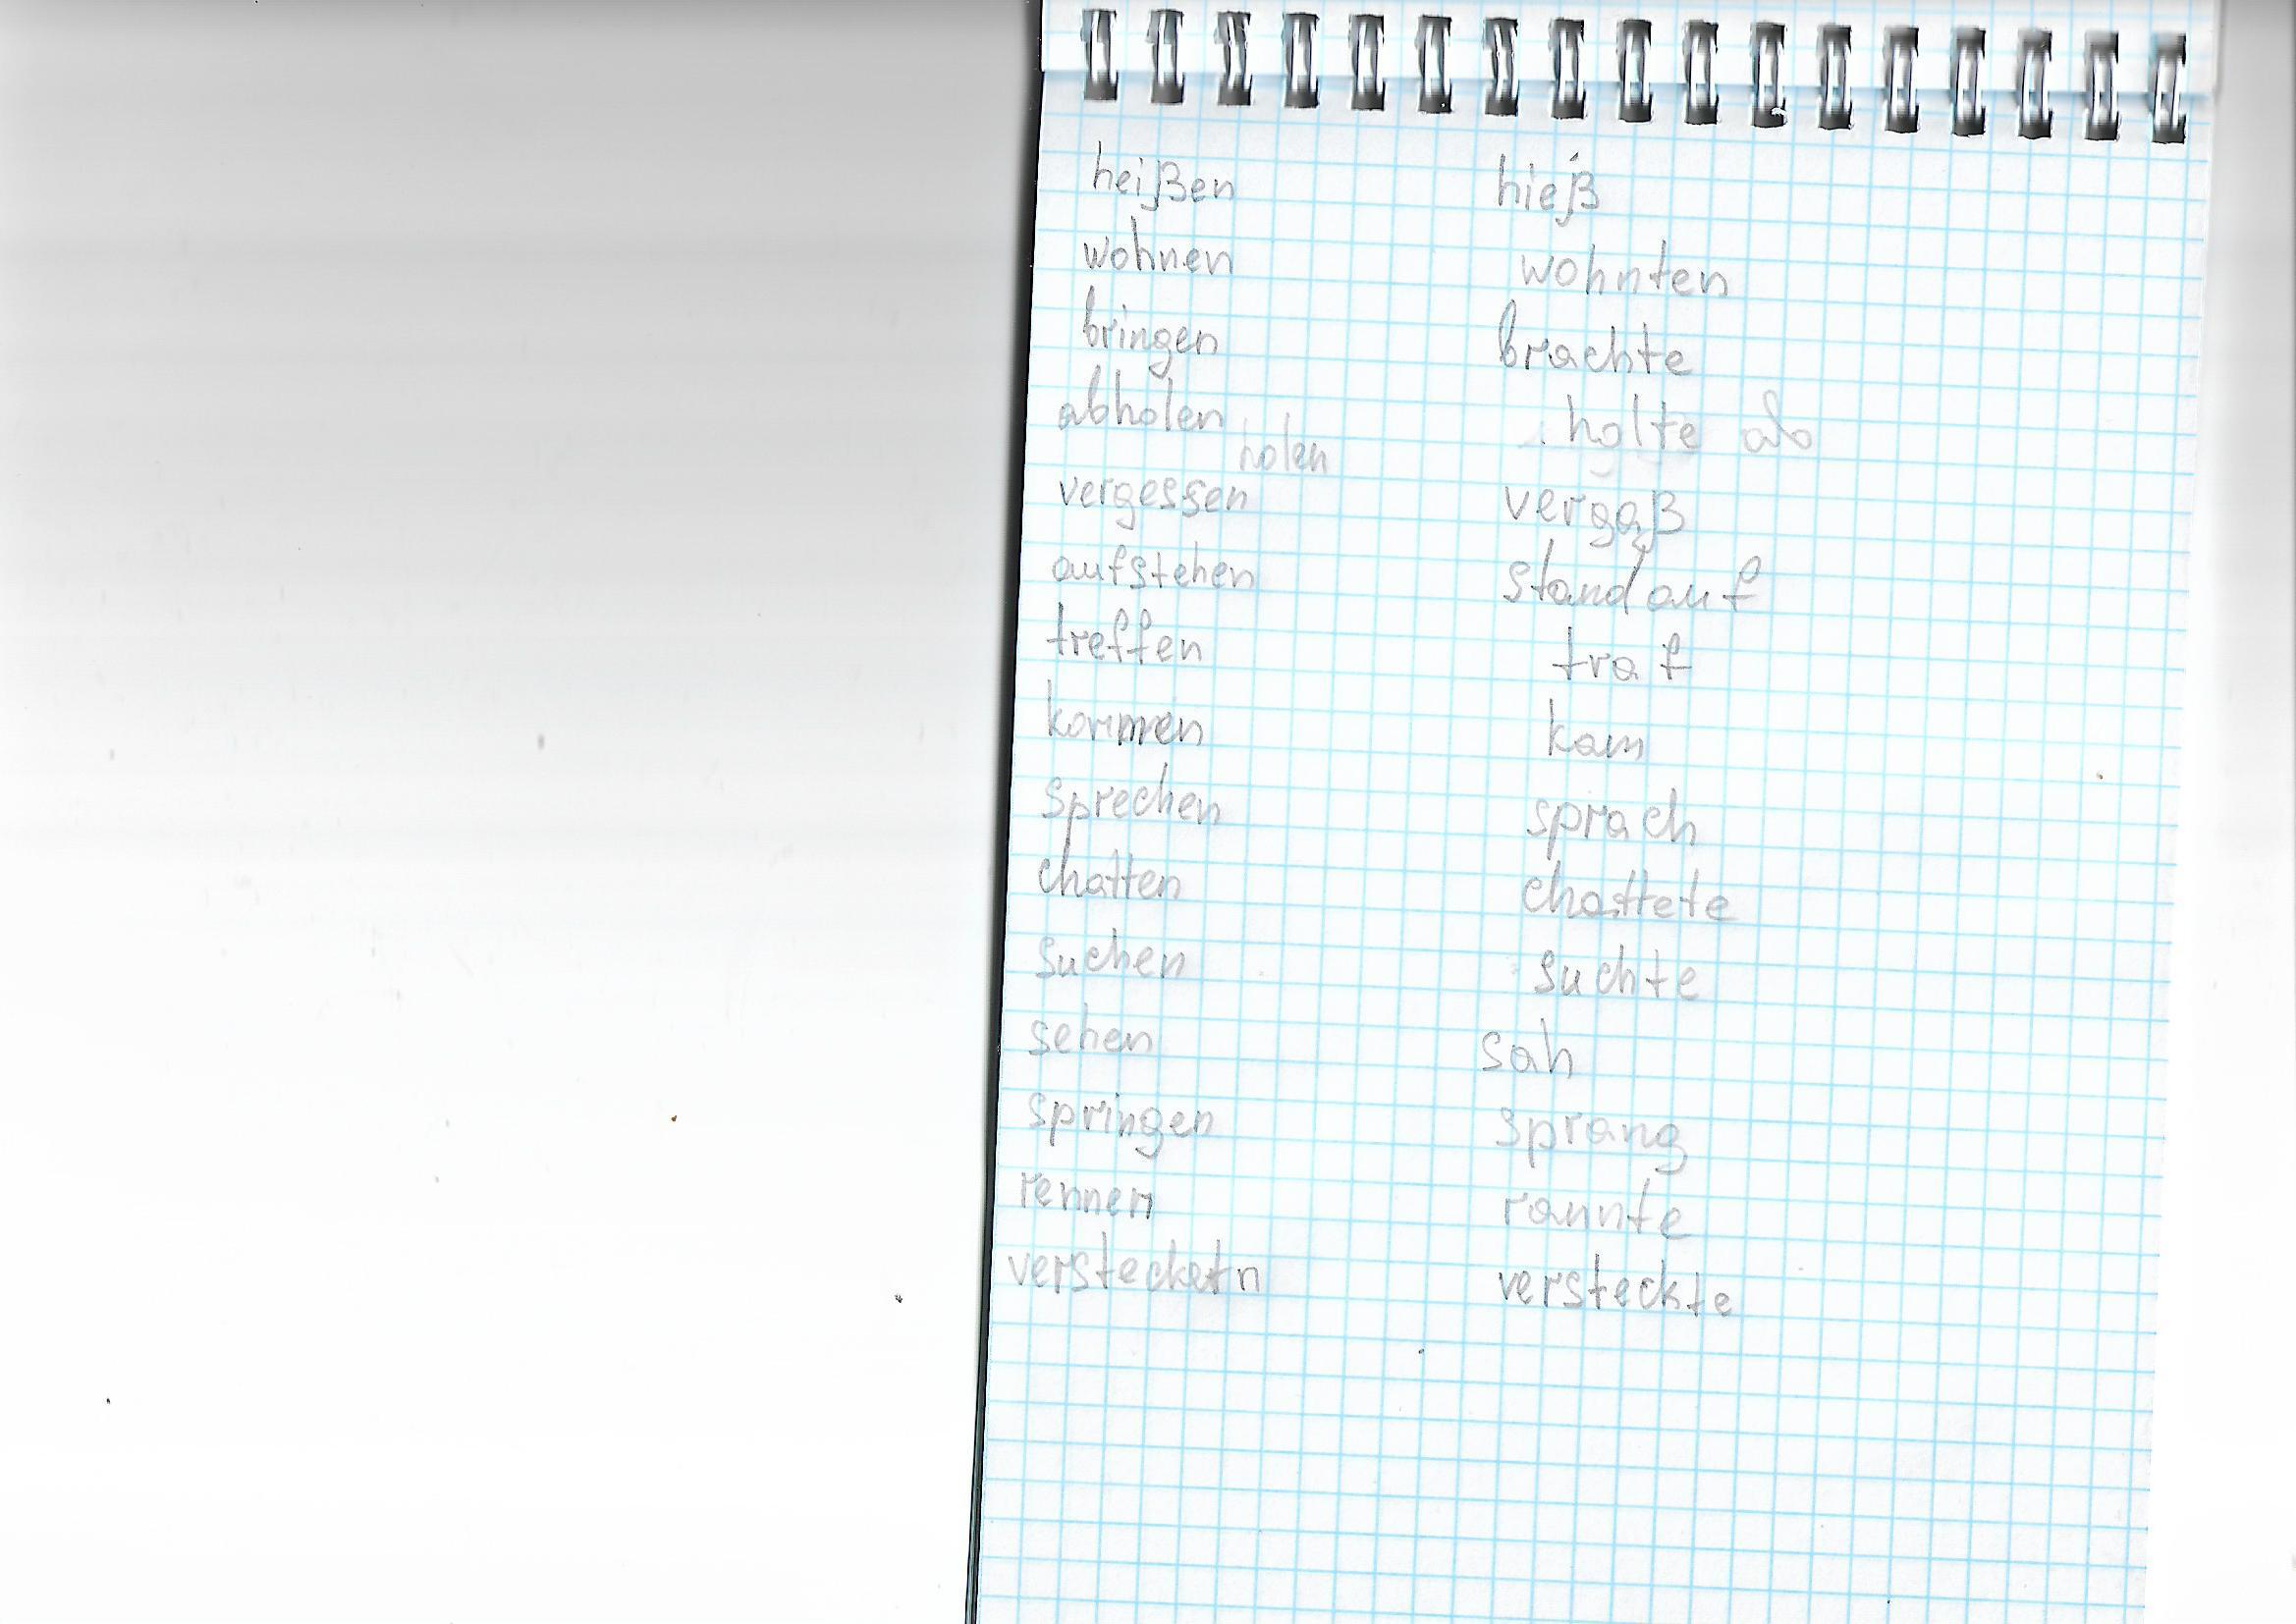 heißen hieß
wohnen wohnten
bringen brachte
abholen holte ab
holen
vergessen vergaß
aufstehen stand auf
treffen traf
kommen kam
sprechen sprach
chatten chattete
suchen suchte
sehen sah
springen sprang
rennen rannte
verstecken versteckte